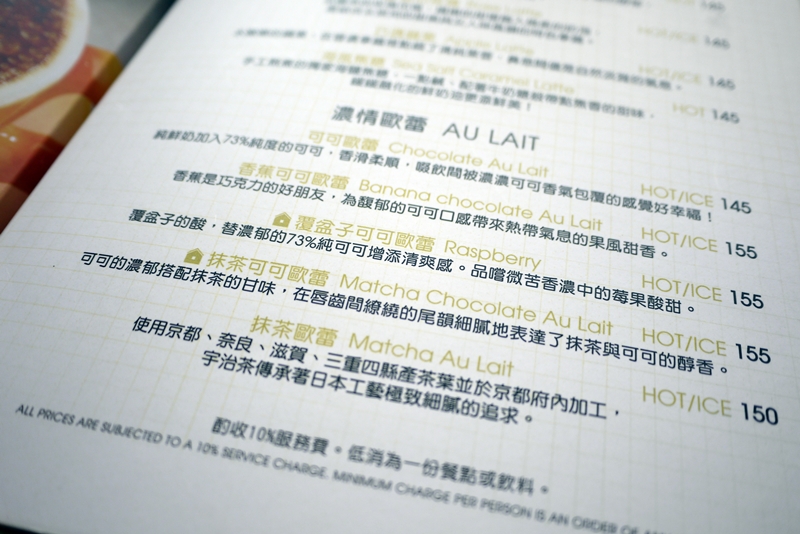 Latte
145
Apple Latte
HOT/ICE 145
海鹽焦糖 Sea Salt Caramel Latte
HOT 145
濃情歐蕾 AU LAIT
可可歐蕾 Chocolate Au Lait
HOT/ICE 145
純鮮奶加入73%純度的可可,香滑柔順,啜飲間被濃濃可可香氣包覆的感覺好幸福!
香蕉可可歐蕾 Banana chocolate Au Lait
HOT/ICE 155
香蕉是巧克力的好朋友,為馥郁的可可口感帶來熱帶氣息的果風甜香。
覆盆子可可歐蕾 Raspberry
HOT/ICE 155
覆盆子的酸,替濃郁的73%純可可增添清爽感。品嚐微苦香濃中的莓果酸甜。
抹茶可可歐蕾 Matcha Chocolate Au Lait
HOT/ICE 155
可可的濃郁搭配抹茶的甘味,在唇齒間繚繞的尾韻細膩地表達了抹茶與可可的醇香。
抹茶歐蕾 Matcha Au Lait
HOT/ICE 150
使用京都、奈良、滋賀、三重四縣產茶葉並於京都府內加工,
宇治茶傳承著日本工藝極致細膩的追求。
酌收10%服務費。低消為一份餐點或飲料。
ALL PRICES ARE SUBJECTED TO A 10% SERVICE CHARGE. MINIMUM CHARGE PER PERSON IS AN ORDER OF